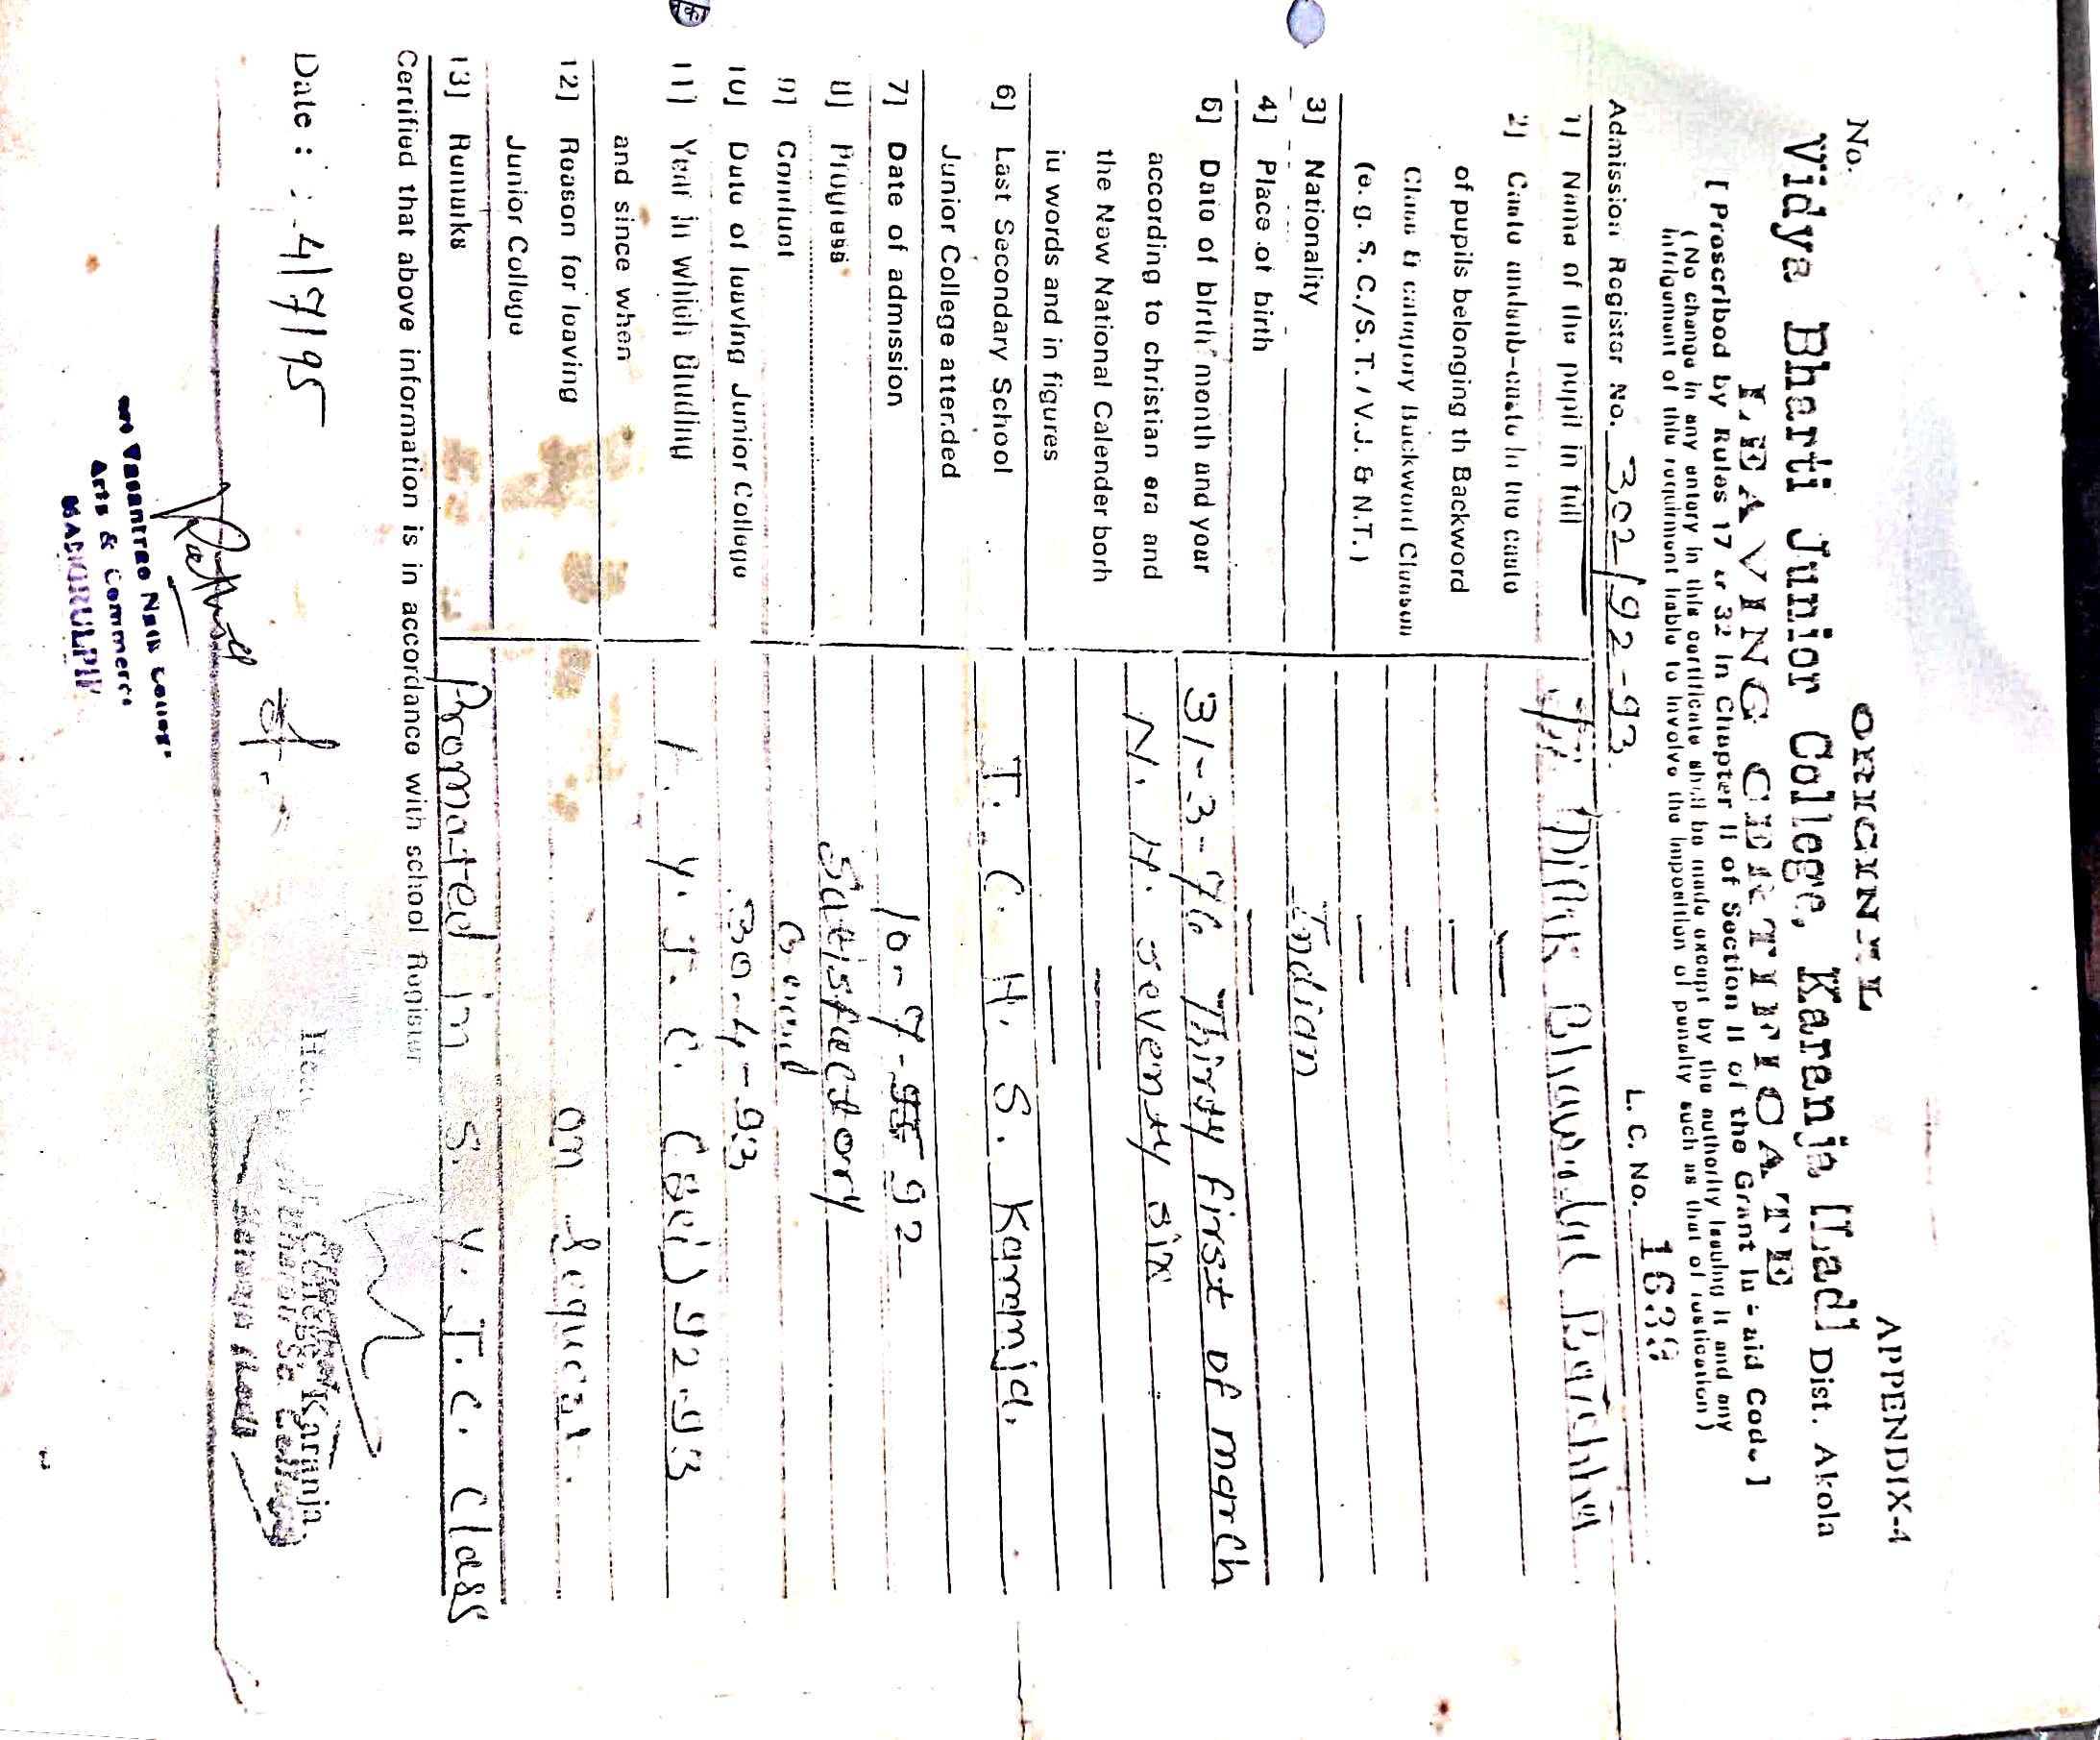 ORIGINAL
APPENDIX-4
No.
Vidya Bharti Junior College, Karanja [Lad] Dist. Akola
LEAVING CERTIFICATE
[ Prescribed by Rules 17 & 32 in Chapter II of Section II of the Grant In - aid Code ]
( No change in any entory in this certificate shall be made except by the authority issuing it and any
infrigument of this requirment liable to involve the imposition of penulty such as that of rustication )
L. C. No.
Admission Register No. 302/92-93.
1) Name of the pupil in full
2] Caste and sub-caste in the caste
of pupils belonging th Backword
Class & category Backword Classes
(e. g. S. C./S. T. / V.J. & N.T. )
3] Nationality Indian
4] Place of birth —
5] Date of birth month and your 31-3-76 Thirty first of march
according to christian era and N. H. seventy six
the Naw National Calender borh
iu words and in figures
6] Last Secondary School T. C. H. S. Karanja.
Junior College attended
7] Date of admission 10-7- 92
8] Progress Satisfactory
9] Conduct Good
10] Date of leaving Junior College 30-4-93
11] Year in which Studing F. Y. J. C. (Sci) 92-93
and since when
12] Reason for leaving on Request.
Junior College
13] Remarks Promoted in S. Y. J. C. Class
Certified that above information is in accordance with school Register
Date : 4/7/95
Karanja
Vasantrao Naik
Arts & Commerce